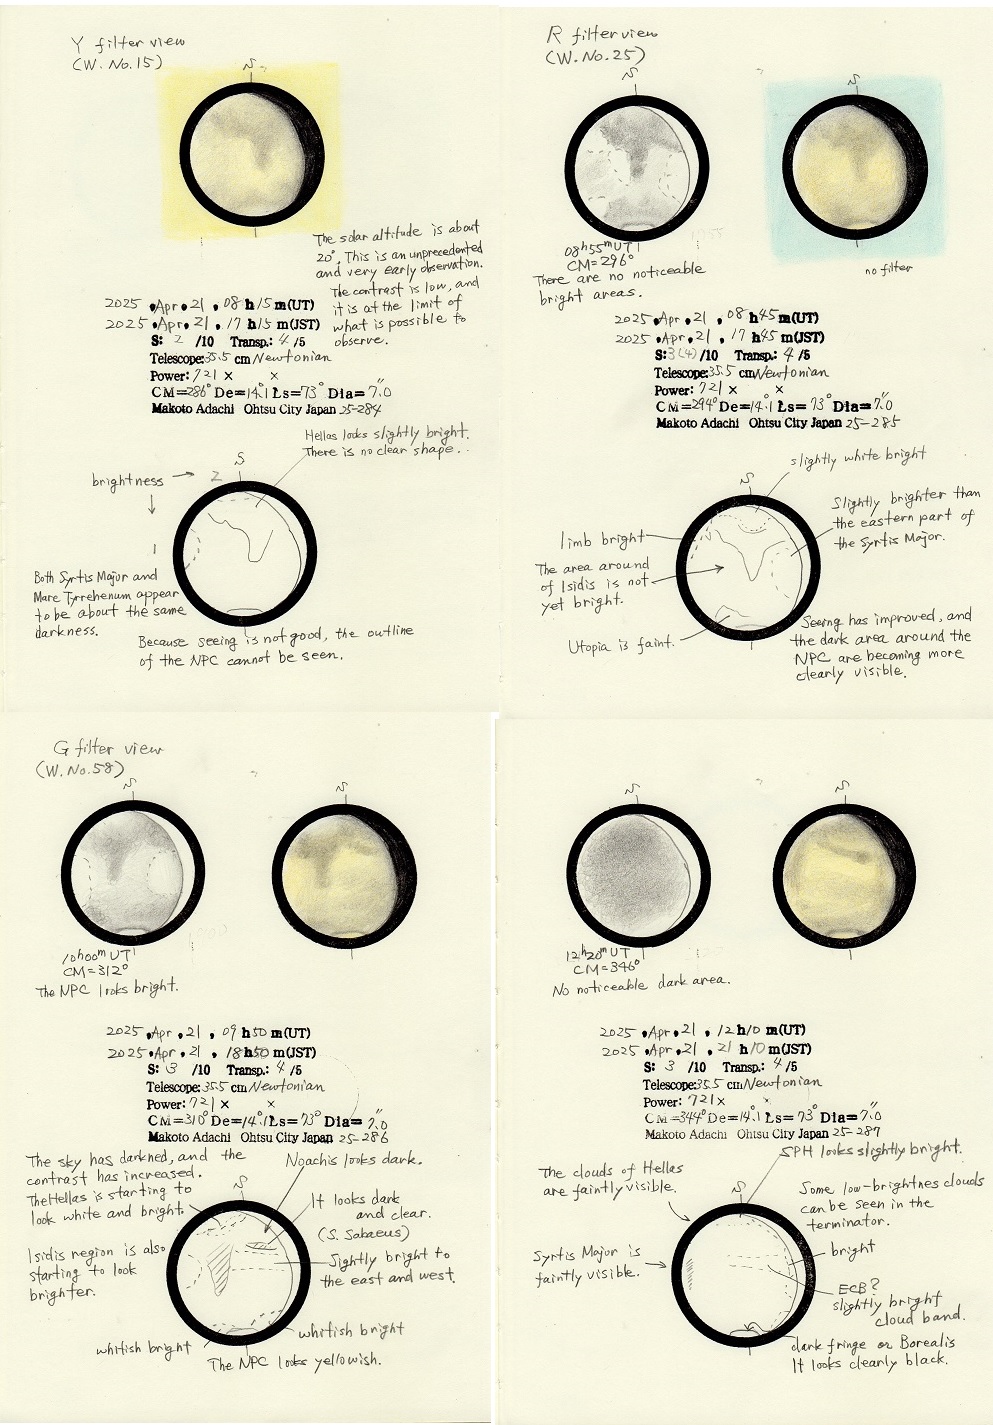 Y filter view
(W. No. 15)
S
The solar altitude is about
20°. This is an unprecedented
and very early observation.
The contrast is low, and
it is at the limit of
what is possible to
observe.
2025 . Apr . 21 , 08 h 15 m(UT)
2025 . Apr . 21 , 17 h 15 m(JST)
S: 2 /10 Transp.: 4 /5
Telescope: 35.5 cm Newtonian
Power: 721 × ×
CM=286° De=14.°1 Ls=73° Dia=7."0
Makoto Adachi Ohtsu City Japan 25-284
Hellas looks slightly bright.
There is no clear shape..
brightness → 2
S
↓
1
Both Syrtis Major and
Mare Tyrrehenum appear
to be about the same
darkness.
Because seeing is not good, the outline
of the NPC cannot be seen.
R filter view
(W. No. 25)
S
S
08h55mUT
CM=296°
There are no noticeable
bright areas.
no filter
2025 . Apr . 21 , 08 h 45 m(UT)
2025 . Apr . 21 , 17 h 45 m(JST)
S: 3(4) /10 Transp.: 4 /5
Telescope: 35.5 cm Newtonian
Power: 721 × ×
CM=294° De=14.°1 Ls=73° Dia=7."0
Makoto Adachi Ohtsu City Japan 25-285
slightly white bright
S
Slightly brighter than
the eastern part of
the Syrtis Major.
limb bright
The area around
of Isidis is not
yet bright.
Utopia is faint.
Seeing has improved, and
the dark area around the
NPC are becoming more
clearly visible.
G filter view
(W. No. 58)
S
S
10h00mUT
CM=312°
The NPC looks bright.
2025 . Apr . 21 , 09 h 50 m(UT)
2025 . Apr . 21 , 18 h 50 m(JST)
S: 3 /10 Transp.: 4 /5
Telescope: 35.5 cm Newtonian
Power: 721 × ×
CM=310° De=14.°1 Ls=73° Dia=7."0
Makoto Adachi Ohtsu City Japan 25-286
The sky has darkned, and the
contrast has increased.
The Hellas is starting to
look white and bright.
Noachis looks dark.
S
It looks dark
and clear.
(S. Sabaeus)
Isidis region is also
starting to look
brighter.
Sightly bright to
the east and west.
whitish bright
whitish bright
The NPC looks yellowish.
S
S
12h20mUT
CM=346°
No noticeable dark area.
2025 . Apr . 21 , 12 h 10 m(UT)
2025 . Apr . 21 , 21 h 10 m(JST)
S: 3 /10 Transp.: 4 /5
Telescope: 35.5 cm Newtonian
Power: 721 × ×
CM=344° De=14.°1 Ls=73° Dia=7."0
Makoto Adachi Ohtsu City Japan 25-287
SPH looks slightly bright.
The clouds of Hellas
are faintly visible.
S
Some low-brightnes clouds
can be seen in the
terminator.
Syrtis Major is
faintly visible.
bright
ECB?
slightly bright
cloud band.
dark fringe or Borealis
It looks clearly black.